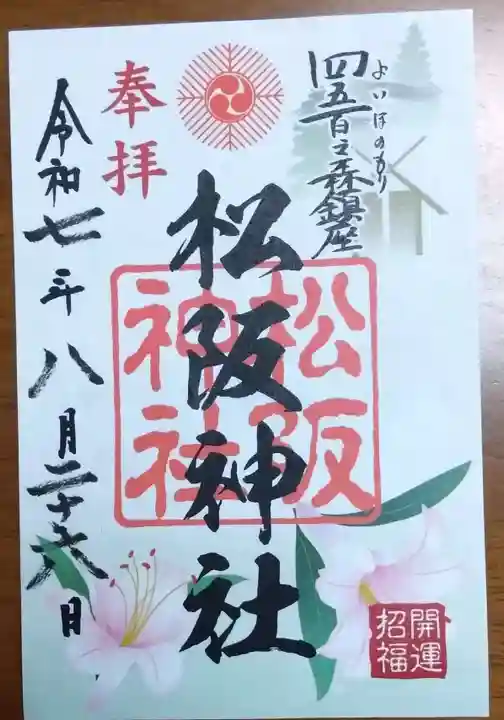 四五百之森鎮座
よいほのもり
奉拝
松阪神社
松阪
神社
令和七年八月二十六日
開運
招福